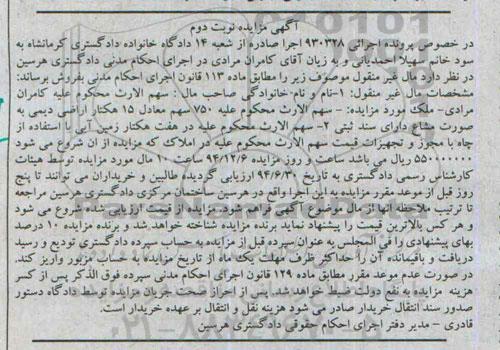 آگهی مزایده نوبت دوم
در خصوص پرونده اجرائی ۹۳۰۳۲۸ اجرا صادره از شعبه ۱۴ دادگاه خانواده دادگستری کرمانشاه به
سود خانم سهیلا احمدیانی و به زیان آقای کامران مرادی در اجرای احکام مدنی دادگستری هرسین
در نظر دارد مال غیر منقول موصوف زیر را مطابق ماده ۱۱۳ قانون اجرای احکام مدنی بفروش برساند:
مشخصات مال غیر منقول: ۱-نام و نام خانوادگی صاحب مال : سهم الارث محکوم علیه کامران
مرادی- ملک مورد مزایده: - سهم الارث محکوم علیه ۷۵۰ سهم معادل ۱۵ هکتار اراضی دیمی به
صورت مشاع دارای سند ثبتی ۲- سهم الارث محکوم علیه در هفت هکتار زمین آبی با استفاده از
چاه با مجوز و تجهیزات قیمت سهم الارث محکوم علیه در املاک که مزایده از ان شروع می شود
۵۵۰۰۰۰۰۰۰ ریال می باشد ساعت و روز مزایده ۹۴/۱۲/۶ ساعت ۱۰ مال مورد مزایده توسط هیئات
کارشناس رسمی دادگستری به تاریخ ۹۴/۶/۳۰ ارزیابی گردیده طالبین و خریداران می توانند تا پنج
روز قبل از موعد مقرر مزایده به این اجرا واقع در هرسین ساختمان مرکزی دادگستری هرسین مراجعه
تا ترتیب ملاحظه آنها از مال موضوع آگهی فراهم شود. مزایده از قیمت ارزیابی شده شروع می شود
و هر کس بالاترین قیمت را پیشنهاد نماید برنده مزایده شناخته خواهد شد و برنده مزایده ۱۰ درصد
بهای پیشنهادی را فی المجلس به عنوان سپرده قبل از مزایده به حساب سپرده دادگستری تودیع و رسید
دریافت و باقیمانده آن را حداکثر ظرف مهلت یک ماه از تاریخ مزایده به حساب مزبور واریز کند.
در صورت عدم موعد مقرر مطابق ماده ۱۲۹ قانون اجرای احکام مدنی سپرده فوق الذکر پس از کسر
هزینه مزایده به نفع دولت ضبط خواهد شد. پس از احراز صحت جریان مزایده توسط دادگاه دستور
صدور سند انتقال خریدار صادر می شود هزینه نقل و انتقال بر عهده خریدار است.
قادری - مدیر دفتر اجرای احکام حقوقی دادگستری هرسین